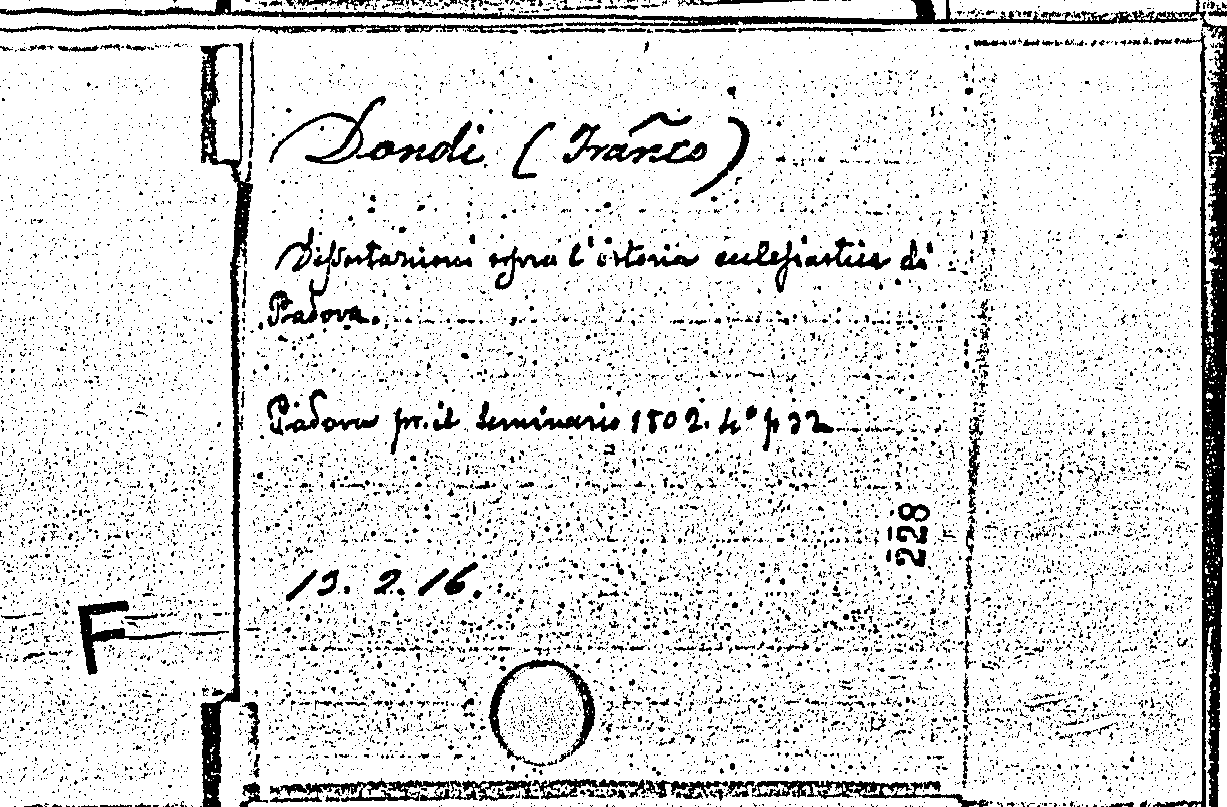 Dondi (Franco)
Dissertazioni sopra l'istoria ecclesiastica di
Padova.
Padova pr. il Seminario 1802. 4° p 32
228
13. 2. 16.
F